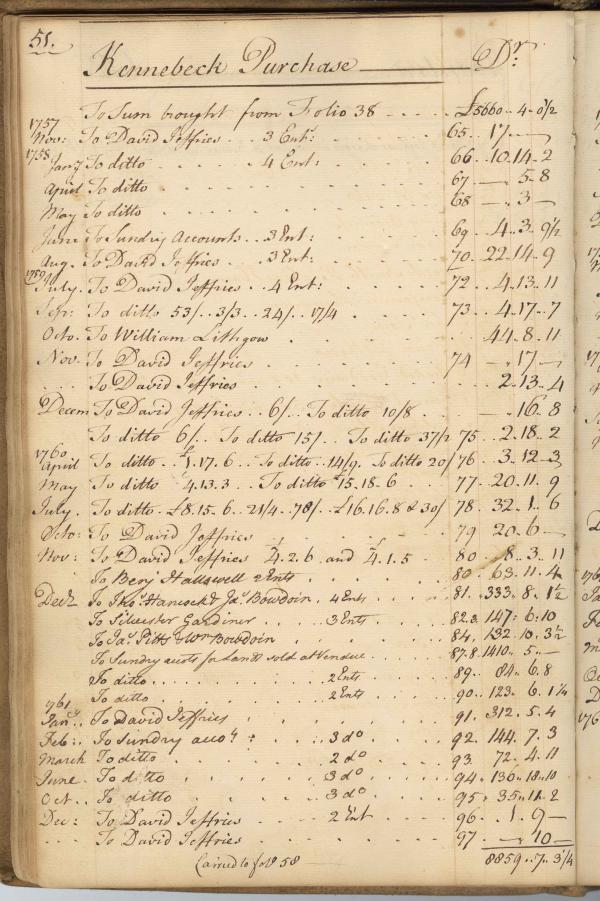 51.
Kennebeck Purchase Dr.
To Sum brought from Folio 38 - - - - £5660 .. 4 .. 0 1/2
1757
Nov: To David Jeffries . . 3 Ent: 65 .. 17 .. —
1758
Jany To ditto . 4 Ent: 66 .. 10 .. 14 .. 2
April To ditto 67 — .. 5 .. 8
May To ditto 68 — .. 3 —
June To Sundry Accounts . . 3 Ent: 69 .. 4 .. 3 .. 9 1/2
Aug. To David Jeffries . . 3 Ent: 70 .. 22 .. 14 .. 9
1759
July. To David Jeffries . . 4 Ent: 72 .. 4 .. 13 .. 11
Sep: To ditto 53/ .. 3/3 .. 24/ .. 17/4 73 .. 4 .. 17 .. 7
Octo. To William Lithgow 44 .. 8 .. 11
Nov. To David Jeffries 74 — .. 17 —
. . . To David Jeffries 2 .. 13 .. 4
Decem To David Jeffries . . 6/ .. To ditto 10/8 — .. 16 .. 8
To ditto 6/ .. To ditto 15/ .. To ditto 37/2 75 .. 2 .. 18 .. 2
1760
April To ditto .. £1.17.6 .. To ditto .. 14/9. To ditto 20/ 76 .. 3 .. 12 .. 3
May To ditto 4.13.3 . . To ditto £15.18.6 77 .. 20 .. 11 .. 9
July. To ditto - £8.15.6 .. 21/4 .. 78/ .. £16.16.8 & 30/ 78 .. 32 .. 1 .. 6
Octo: To David Jeffries 79 20 .. 6 —
Nov: To David Jeffries £4.2.6 and £4.1.5 80 .. 8 .. 3 .. 11
To Benj Hallowell 2 Ents 80 .. 63 .. 11 .. 4
Decr To Thos. Hancock & Jas. Bowdoin . 4 Ents 81 .. 333 .. 8 .. 1 1/2
To Silvester Gardiner . . 3 Ents 82.3 .. 147 .. 6 .. 10
To Jas. Pitts & Wm Bowdoin 84. 132 .. 10 .. 3 1/2
To Sundry accts for Lands sold at Vendue 87.8 .. 1410 .. 5 .. —
To ditto . . . 2 Ents 89 .. 84 .. 6 .. 8
To ditto . . . 2 Ents 90 .. 123 .. 6 .. 1 1/4
1761
Jany. To David Jeffries 91. 312 .. 5 .. 4
Feb: . To Sundry accots : . 3 do 92. 144 .. 7 .. 3
March To ditto . . . 2 do 93. 72 .. 4 .. 11
June . To ditto . . . 3 do 94 .. 130 .. 18 .. 10
Oct . . To ditto . . . 3 do 95 .. 35 .. 11 .. 2
Dec: . To David Jeffries . . 2 Ent 96 .. 1 .. 9 —
. . . To David Jeffries 97. — .. 10 —
Carried to fol° 58 8859 .. 7 .. 3 1/4